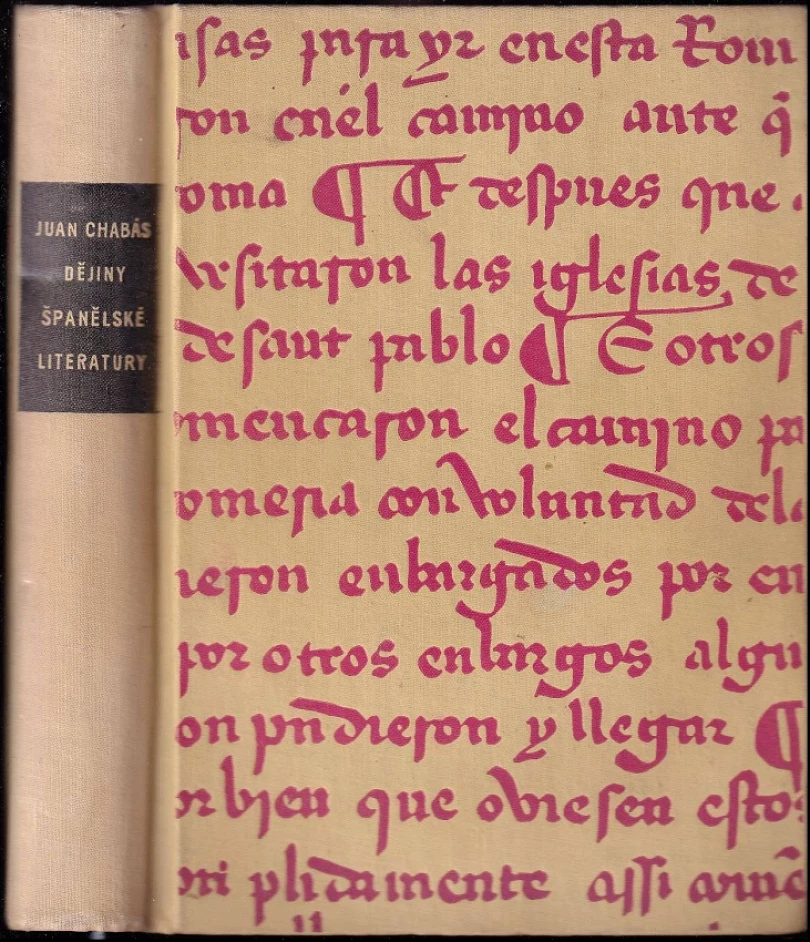 JUAN CHABÁS
DĚJINY
ŠPANĚLSKÉ
LITERATURY
para yr en esta Rom
ron en él camino ante q̃
oma ¶ Et despues que
visitaron las iglesias, de
de sant pablo ¶ E otros
mencaron el camino pa
omeria con voluntad dela
ieron enbargados por en
por otros enbargos algu
on pudieron y llegar ¶
bien que oviesen esto
plidamente assi comẽ